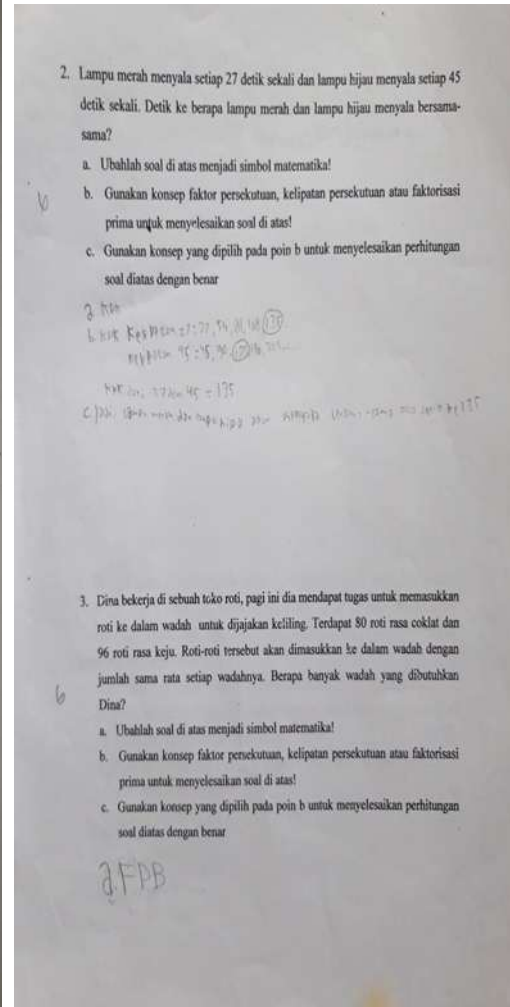 2. Lampu merah menyala setiap 27 detik sekali dan lampu hijau menyala setiap 45
detik sekali. Detik ke berapa lampu merah dan lampu hijau menyala bersama-
sama?
a. Ubahlah soal di atas menjadi simbol matematika!
6
b. Gunakan konsep faktor persekutuan, kelipatan persekutuan atau faktorisasi
prima untuk menyelesaikan soal di atas!
c. Gunakan konsep yang dipilih pada poin b untuk menyelesaikan perhitungan
soal diatas dengan benar
a.
b.
45 = 135
c) 135
3. Dina bekerja di sebuah toko roti, pagi ini dia mendapat tugas untuk memasukkan
roti ke dalam wadah untuk dijajakan keliling. Terdapat 80 roti rasa coklat dan
96 roti rasa keju. Roti-roti tersebut akan dimasukkan ke dalam wadah dengan
jumlah sama rata setiap wadahnya. Berapa banyak wadah yang dibutuhkan
6
Dina?
a. Ubahlah soal di atas menjadi simbol matematika!
b. Gunakan konsep faktor persekutuan, kelipatan persekutuan atau faktorisasi
prima untuk menyelesaikan soal di atas!
c. Gunakan konsep yang dipilih pada poin b untuk menyelesaikan perhitungan
soal diatas dengan benar
a. FPB